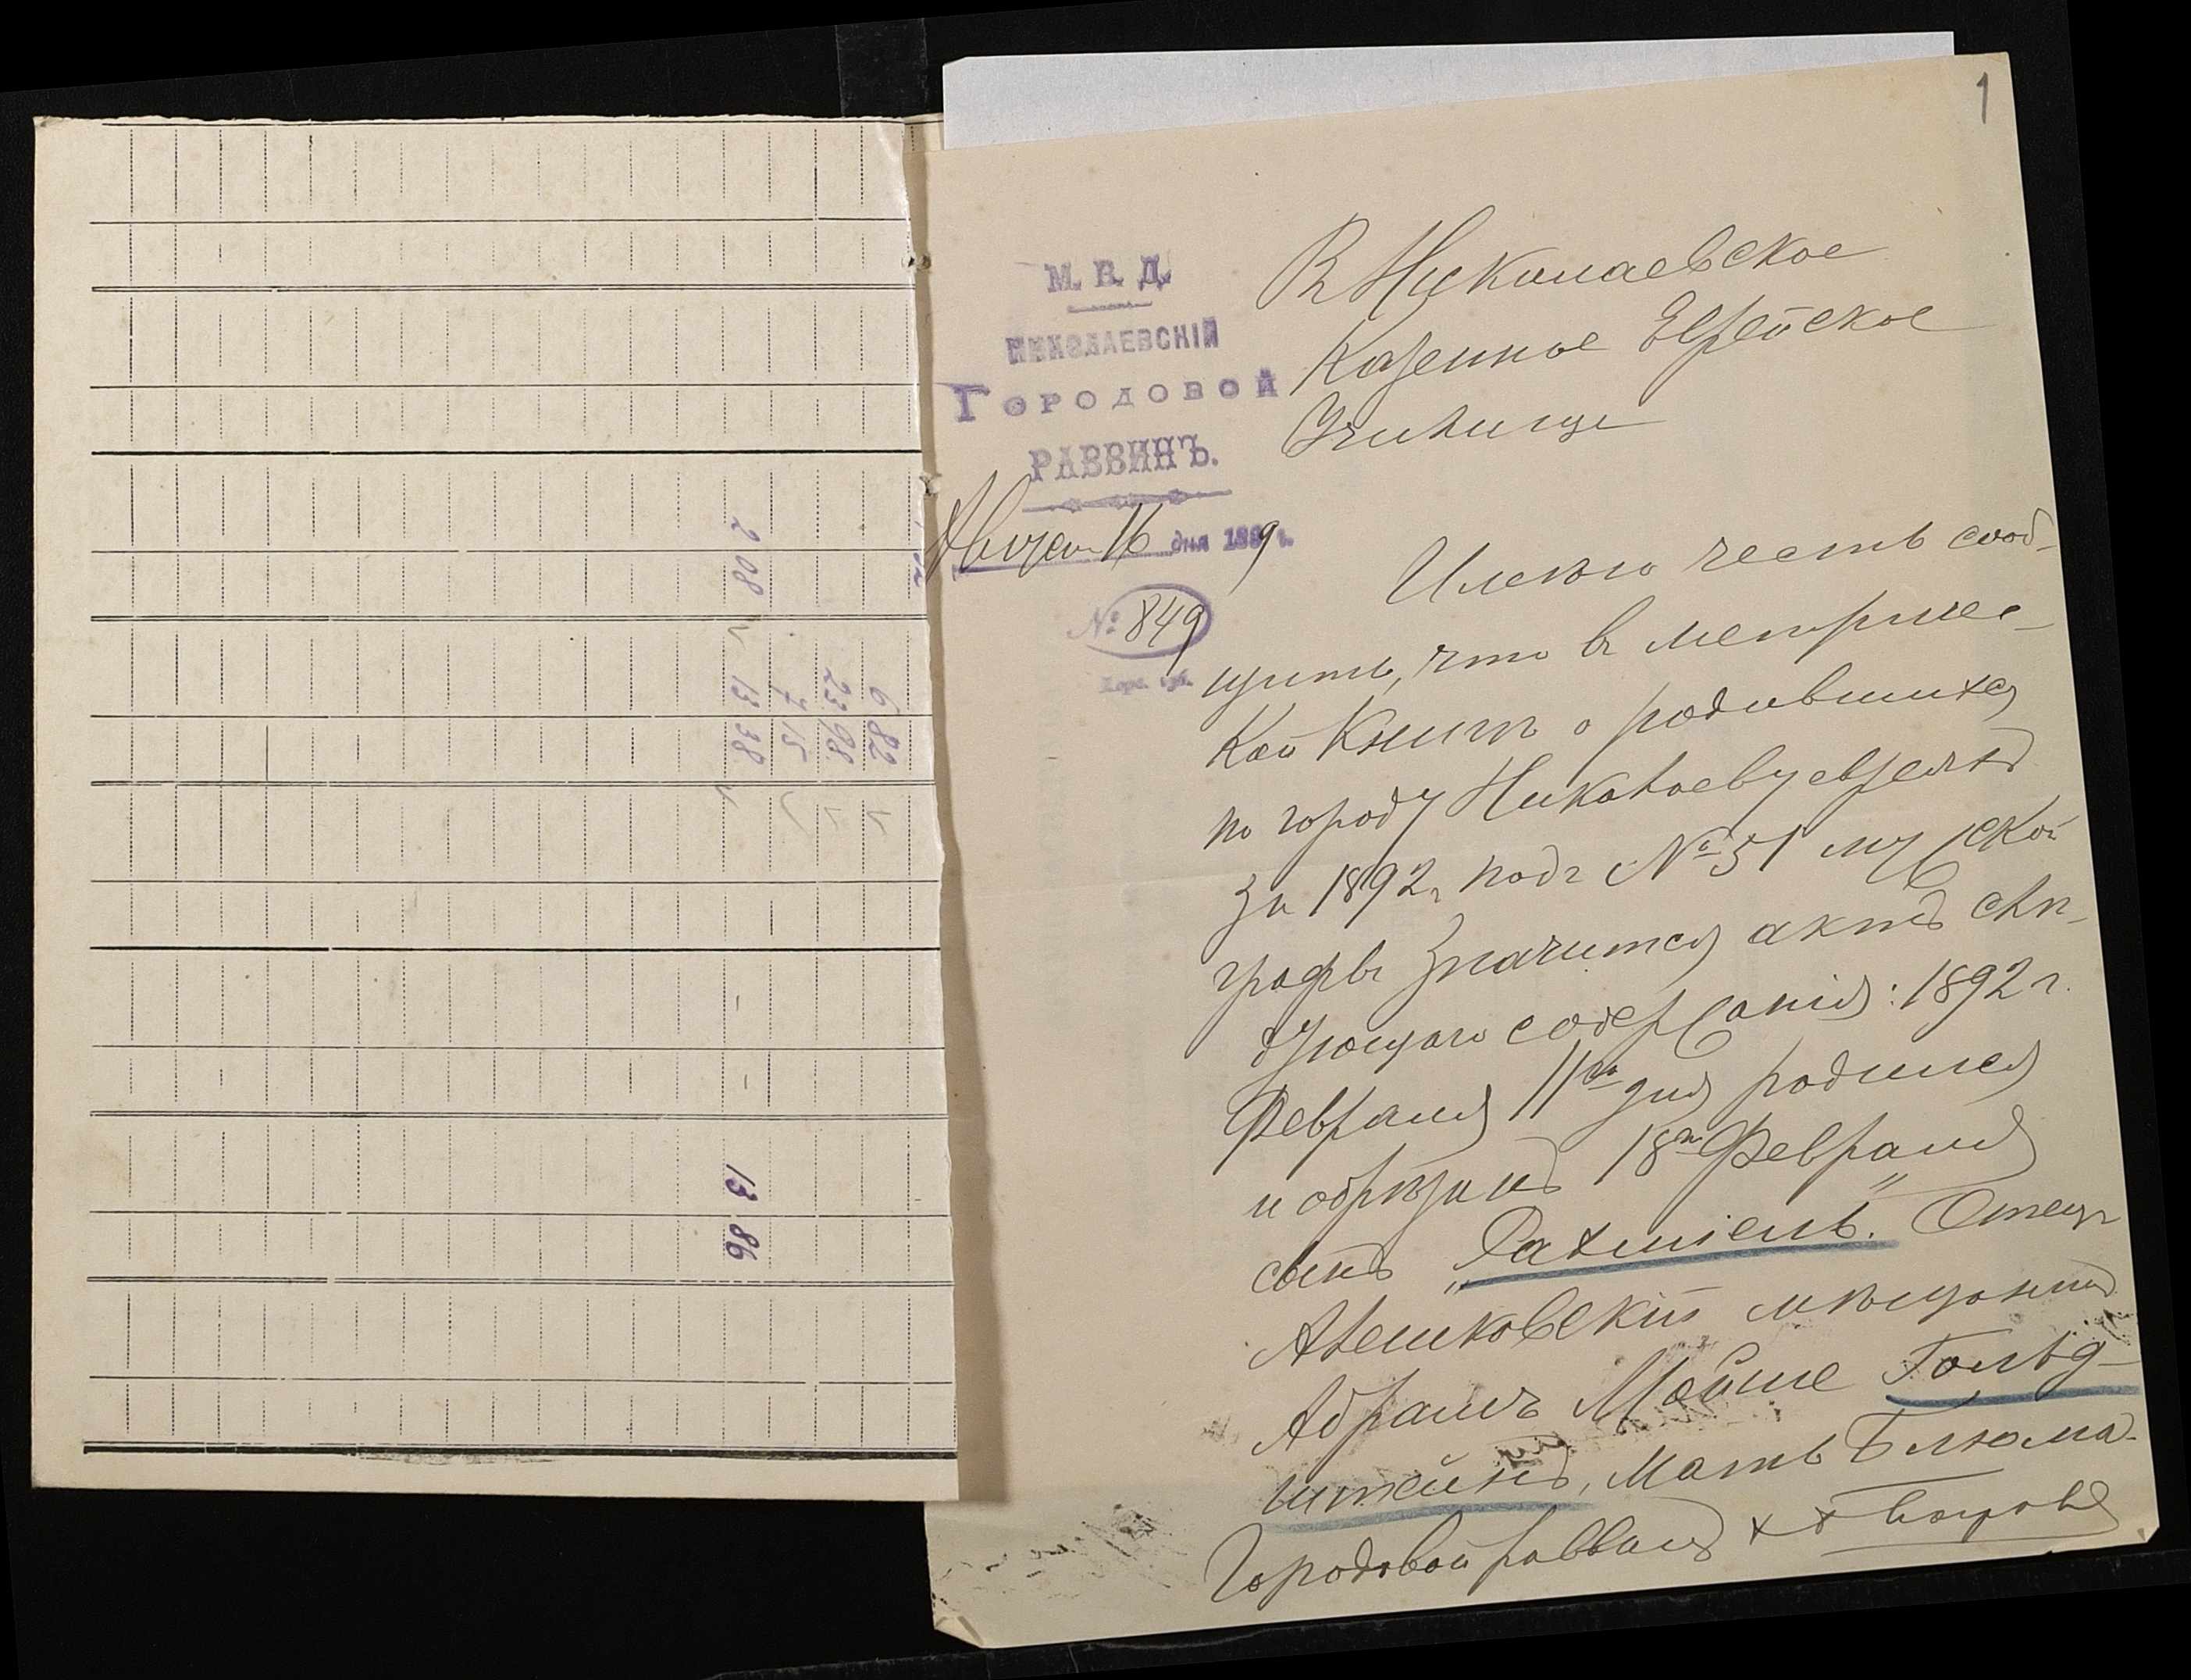 2 08
13 38
7 15
23 98
6 82
13 86
1
М. В. Д.
НИКОЛАЕВСКІЙ
ГОРОДОВОЙ
РАВВИНЪ.
Август 16 дня 1899 г.
№ 849
Херс. губ.
В Николаевское
Казенное Еврейское
Училище
Имѣю честь сооб-
щить, что в метричес-
кой книгѣ о родившихся
по городу Николаеву евреяхъ
за 1892 г подъ № 51 мужской
графы значится актъ слѣ-
дующаго содержанія: 1892 г.
Февраля 11го дня родился
и обрѣзанъ 18го Февраля
сынъ „Рахміель". Отецъ
Алешковскій мѣщанинъ
Абрамъ Мойше Гольд-
штейнъ, мать Блюма.
Городовой раввинъ